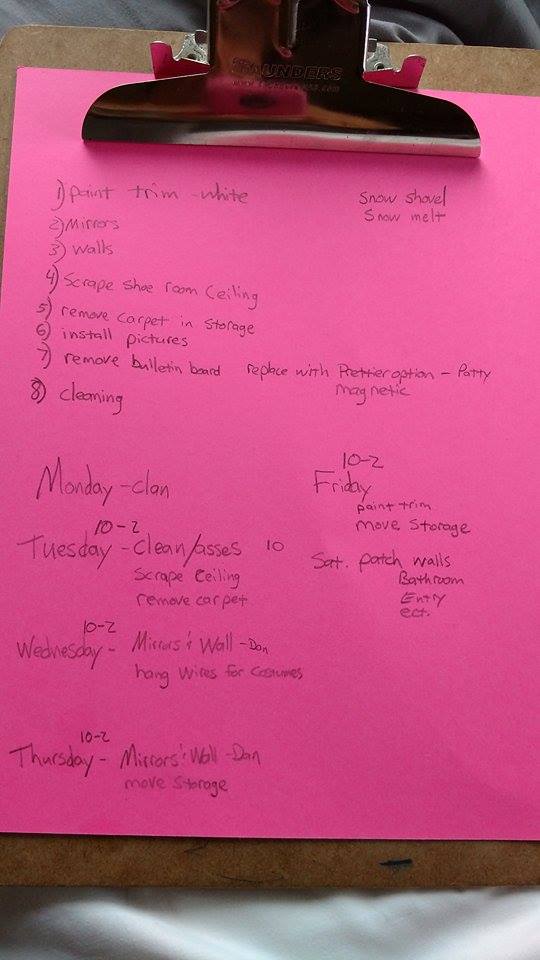 SAUNDERS
1) paint trim - white
Snow shovel
Snow melt
2) Mirrors
3) walls
4) Scrape shoe room Ceiling
5) remove carpet in storage
6) install pictures
7) remove bulletin board replace with Prettier option - Patty
magnetic
8) cleaning
Monday - clan
10-2
Tuesday - Clean/asses 10
Scrape Ceiling
remove carpet
10-2
Wednesday - Mirrors & Wall - Dan
hang wires for Costumes
10-2
Thursday - Mirrors & Wall - Dan
move Storage
10-2
Friday
paint trim
move Storage
Sat. patch walls
Bathroom
Entry
ect.